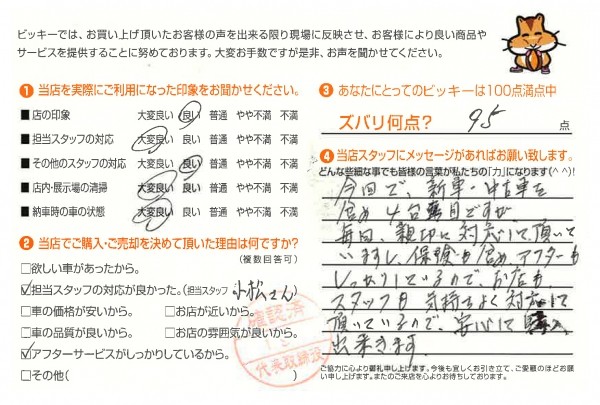 ビッキーでは、お買い上げ頂いたお客様の声を出来る限り現場に反映させ、より良い商品や
サービスを提供することに努めております。大変お手数ですが是非、お声を聞かせてください。
❶ 当店を実際にご利用になった印象をお聞かせください。
■ 店の印象 大変良い 良い 普通 やや不満 不満
■ 担当スタッフの対応 大変良い 良い 普通 やや不満 不満
■ その他のスタッフの対応 大変良い 良い 普通 やや不満 不満
■ 店内・展示場の清掃 大変良い 良い 普通 やや不満 不満
■ 納車時の車の状態 大変良い 良い 普通 やや不満 不満
❷ 当店でご購入・ご売却を決めて頂いた理由は何ですか?
(複数回答可)
□欲しい車があったから。
☑担当スタッフの対応が良かった。(担当スタッフ 小松さん)
□車の価格が安いから。 □お店が近いから。
□車の品質が良いから。 □お店の雰囲気が良いから。
☑アフターサービスがしっかりしているから。
□その他( )
確認済
代表取締役
❸ あなたにとってのビッキーは100点満点中
ズバリ何点? 95 点
❹ 当店スタッフにメッセージがあればお願い致します。
どんな些細な事でも皆様の言葉が私たちの「力」になります(^^)!
今回で、新車・中古車を
含め4台目ですが、
毎回、親切に対応して頂いて
いますし、保険も含め、アフターも
しっかりしているので、お店も、
スタッフも気持ちよく対応して
頂いているので、安心して購入
出来ます。
ご協力に心より御礼申し上げます。今後も宜しくお引き立て、ご愛顧のほどお願
い申し上げます。またのご来店を心よりお待ちしております。